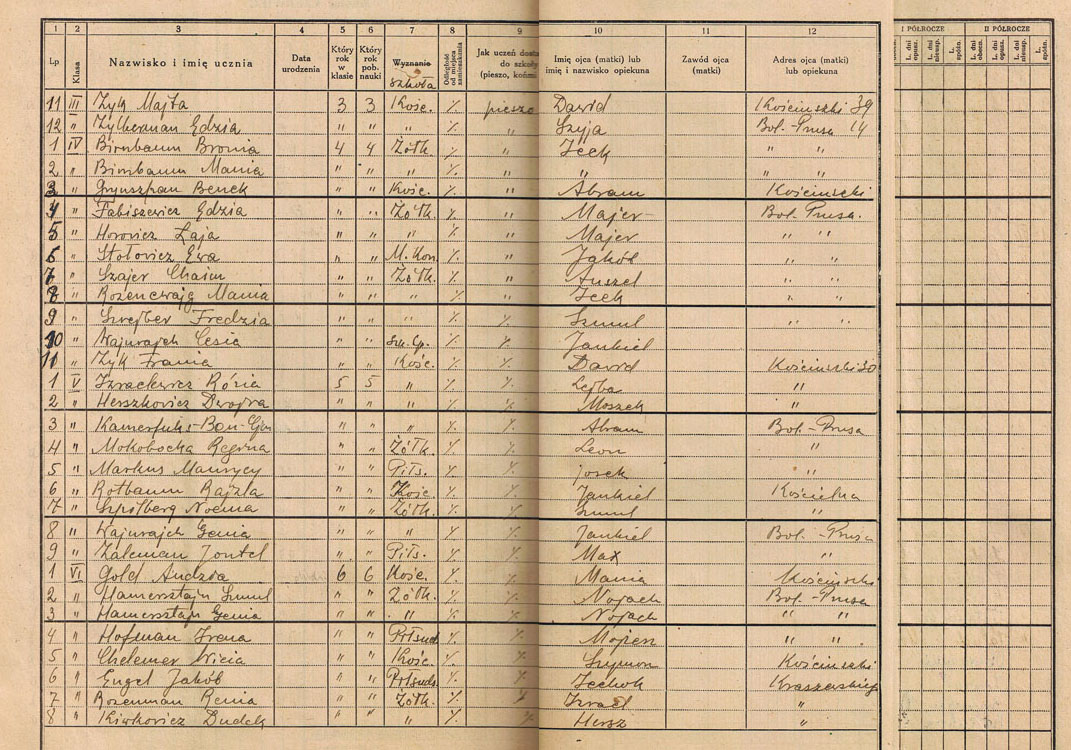 1 2 3 4 5 6 7 8 9 10 11 12 I PÓŁROCZE II PÓŁROCZE
Lp Klasa Nazwisko i imię ucznia Data urodzenia Który rok w klasie Który rok pob. nauki Wyznanie szkoła Odległość od miejsca zamieszkania Jak uczeń dosta do szkoły (pieszo, końmi Imię ojca (matki) lub imię i nazwisko opiekuna Zawód ojca (matki) Adres ojca (matki) lub opiekuna L. dni opusz. L. dni nieusp. L. spóźn. L. dni obecn. L. dni nieusp. L. spóźn.
11 III Zyk Majta 3 3 Kośc. % pieszo Dawid Kościuszki 39
12 " Zylberman Edzia " " " % " Szyja Bol. Prusa 14
1 IV Birnbaum Bronia 4 4 Żółk. % " Icek " "
2 " Birnbaum Mania " " " % " " " "
3 " Grynszpan Benek " " Kośc. % " Abram Kościuszki
4 " Fabiszewicz Edzia " " Żółk. % " Majer Bol. Prusa.
5 " Horowicz Łaja " " " % " Majer " "
6 " Stołowicz Ewa " " M. Kon. % " Jakób " "
7 " Szajer Chaim " " Żółk. % " Anszel " "
8 " Rozencwajg Mania " " " % " Icek " "
9 " Szrejber Fredzia " " " % % Szmul " "
10 " Wajnrajch Cesia " " % % Jankiel
11 " Zyk Frania " " Kośc. % % Dawid Kościuszki 30
1 V Izraelewicz Rózia 5 5 " % % Lejba "
2 " Herszkowicz Dwojra " " " % % Moszek "
3 " " " " % % Abram Bol. Prusa
4 " Mokobocka Regina " " Żółk. % % Leon "
5 " Markus Maurycy " " Piłs. % % Josek "
6 " Rotbaum Rajzla " " Kośc. % % Jankiel Kościelna
7 " Szpilberg Noema " " Żółk. % % Szmul "
8 " Wajnrajch Genia " " " % % Jankiel Bol. Prusa
9 " Zaleman Jontel " " Piłs. % % Max "
1 VI Gold Andzia 6 6 Kośc. % % Mania Kościuszki
2 " Hamersztajn Szmul " " Żółk. % % Nojach Bol. Prusa
3 " Hamersztajn Genia " " " % % Nojach " "
4 " Hofman Irena " " Piłsud. % % " "
5 " Chelemer Nicia " " Kośc. % % Szymon Kościuszki
6 " Engel Jakób " " Piłsuds. % % Kraszewskiego
7 " Rozenman Renia " " Żółk. % % Izrael "
8 " Kirkowicz Dudek " " " % % Hersz "